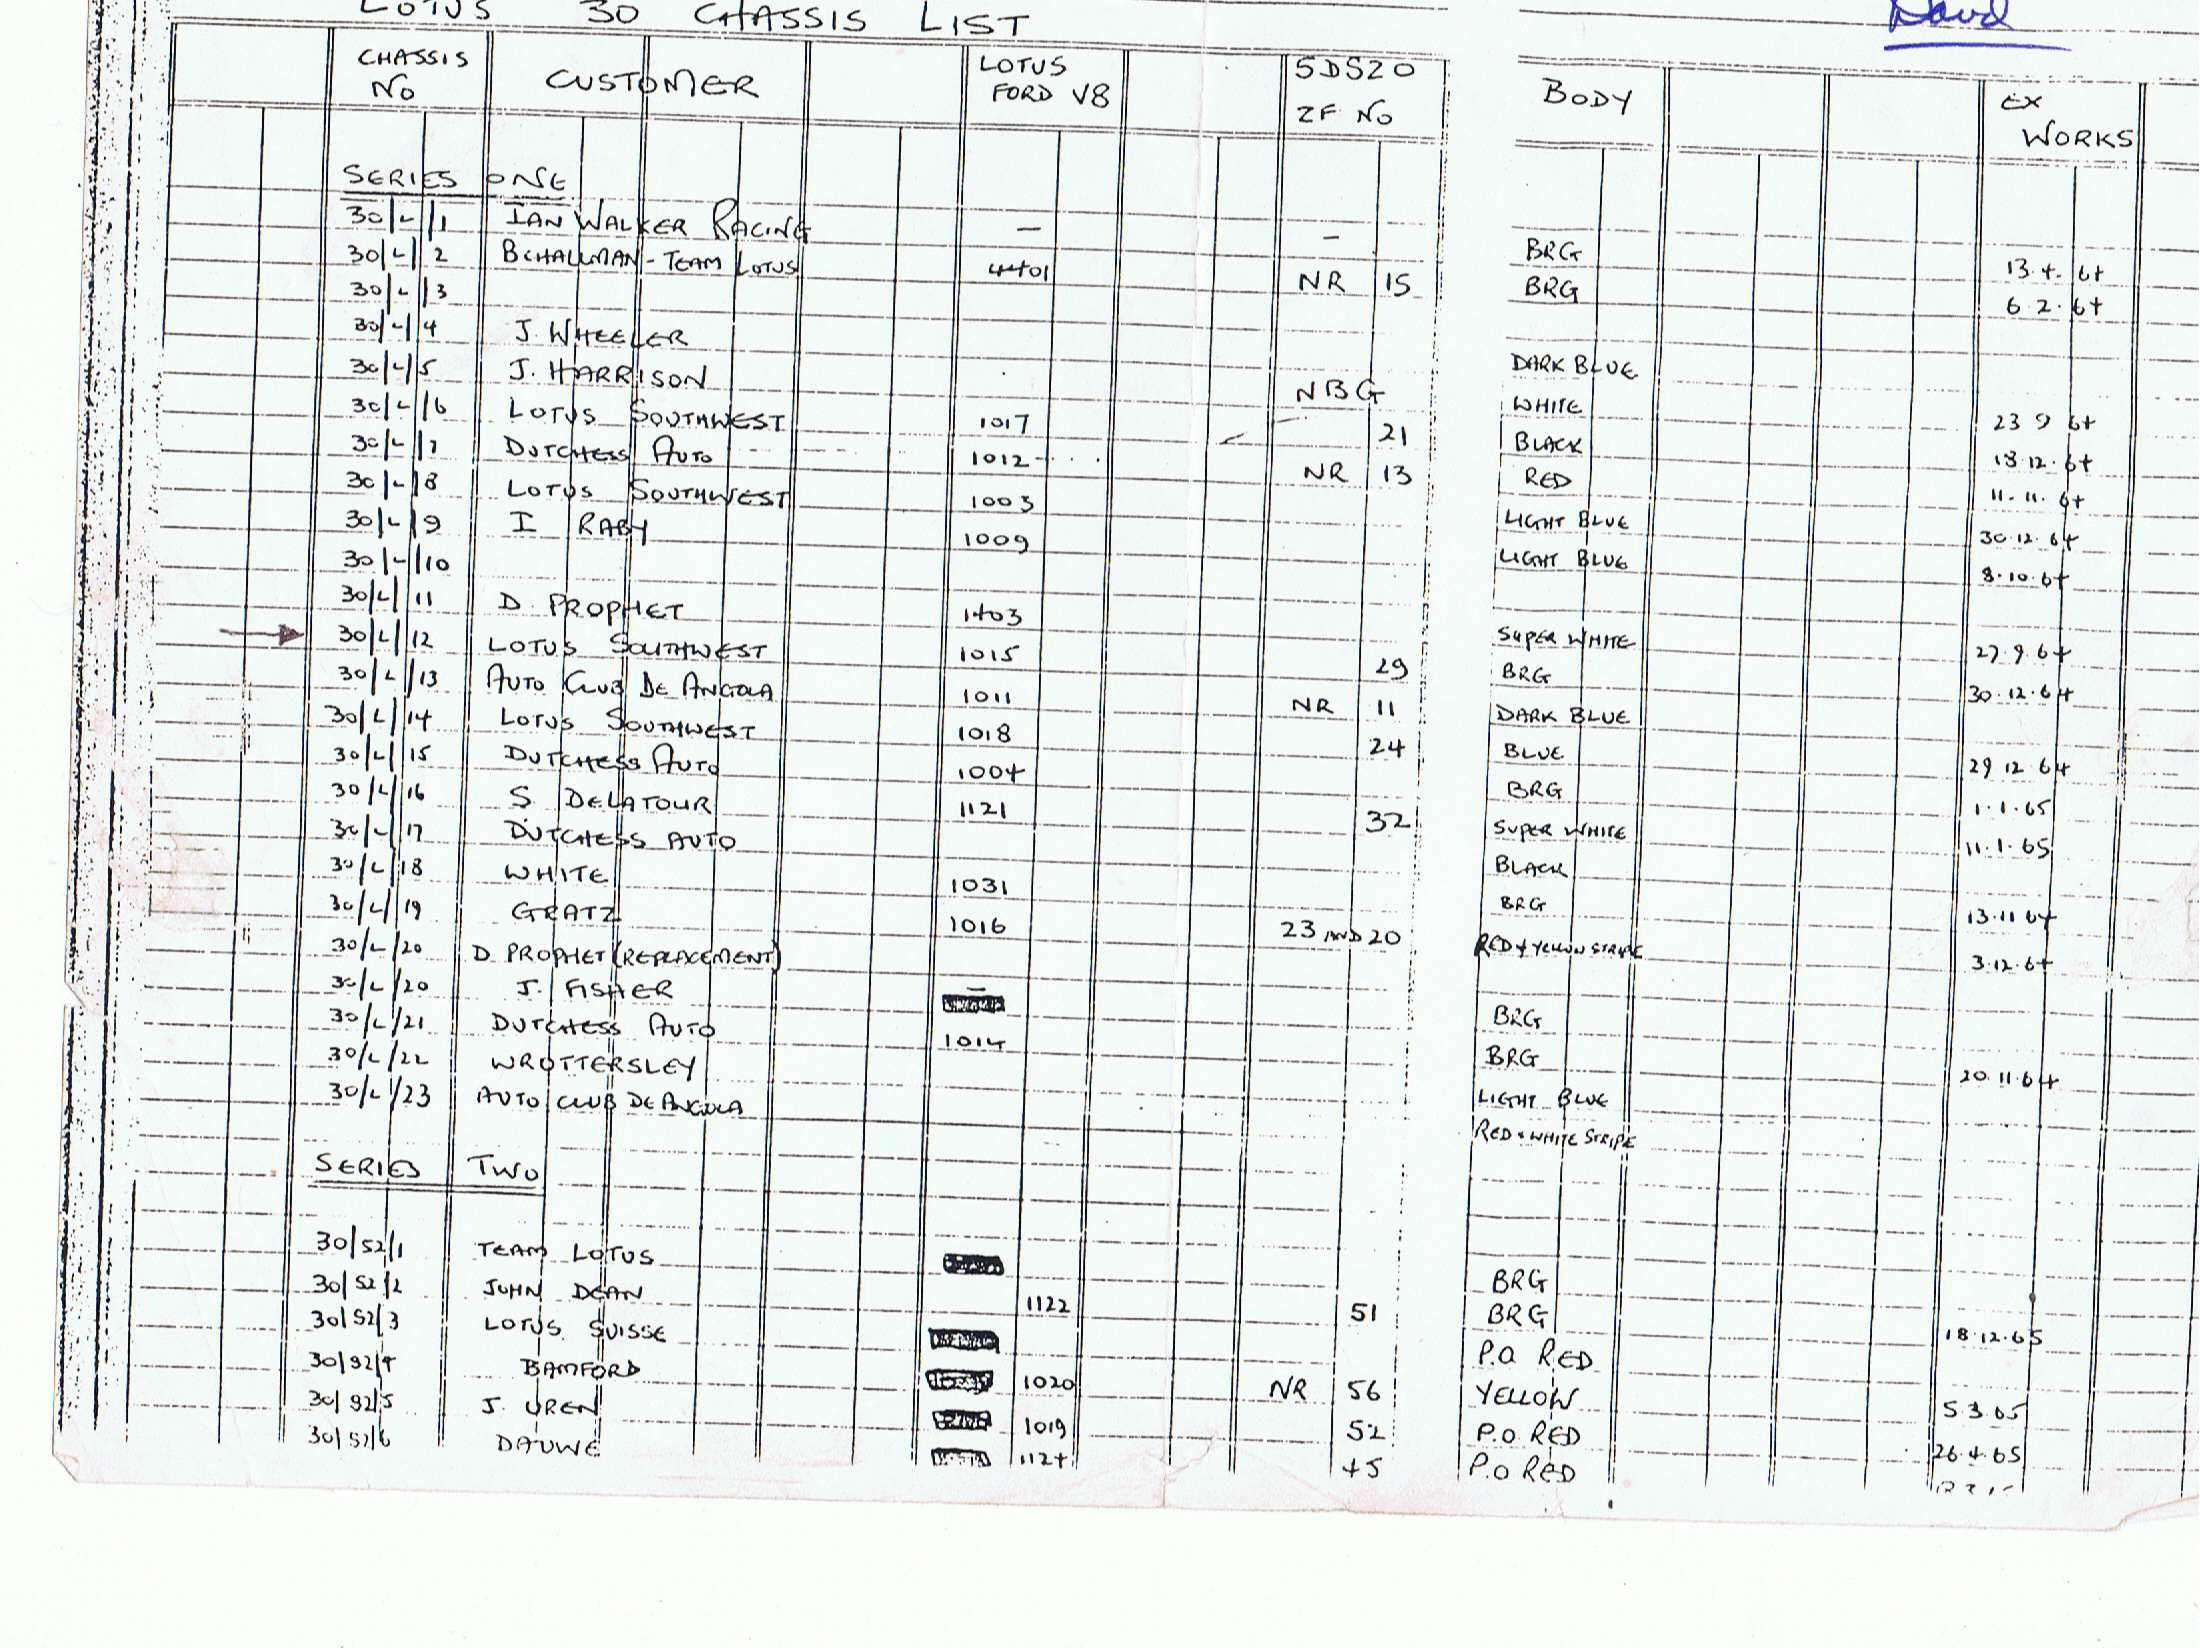 LOTUS 30 CHASSIS LIST David
CHASSIS No CUSTOMER LOTUS FORD V8 5DS20 ZF No BODY EX WORKS
SERIES ONE
30/L/1 IAN WALKER RACING — — BRG 13.4.64
30/L/2 BCHALLMAN - TEAM LOTUS 4401 NR 15 BRG 6.2.64
30/L/3
30/L/4 J. WHEELER DARK BLUE
30/L/5 J. HARRISON NBG WHITE 23 9 64
30/L/6 LOTUS SOUTHWEST 1017 21 BLACK 18.12.64
30/L/7 DUTCHESS AUTO 1012 NR 13 RED 11.11.64
30/L/8 LOTUS SOUTHWEST 1003 LIGHT BLUE 30.12.64
30/L/9 I RABY 1009 LIGHT BLUE 8.10.64
30/L/10
30/L/11 D. PROPHET 1403 SUPER WHITE 27.9.64
30/L/12 LOTUS SOUTHWEST 1015 29 BRG 30.12.64
30/L/13 AUTO CLUB DE ANGOLA 1011 NR 11 DARK BLUE
30/L/14 LOTUS SOUTHWEST 1018 24 BLUE 29 12 64
30/L/15 DUTCHESS AUTO 1004 BRG 1.1.65
30/L/16 S. DELATOUR 1121 32 SUPER WHITE 11.1.65
30/L/17 DUTCHESS AUTO BLACK
30/L/18 WHITE 1031 BRG 13.11.64
30/L/19 GRATZ 1016 23 AND 20 RED + YELLOW STRIPE 3.12.64
30/L/20 D PROPHET (REPLACEMENT)
30/L/20 J. FISHER — BRG
30/L/21 DUTCHESS AUTO 1014 BRG 20.11.64
30/L/22 WROTTERSLEY LIGHT BLUE
30/L/23 AUTO CLUB DE ANGOLA RED + WHITE STRIPE
SERIES TWO
30/S2/1 TEAM LOTUS BRG
30/S2/2 JOHN DEAN 1122 51 BRG 18.12.65
30/S2/3 LOTUS SUISSE P.O RED
30/S2/4 BAMFORD 1020 NR 56 YELLOW 5.3.65
30/S2/5 J. UREN 1019 52 P.O RED 26.4.65
30/S2/6 DAUWE 1124 45 P.O RED